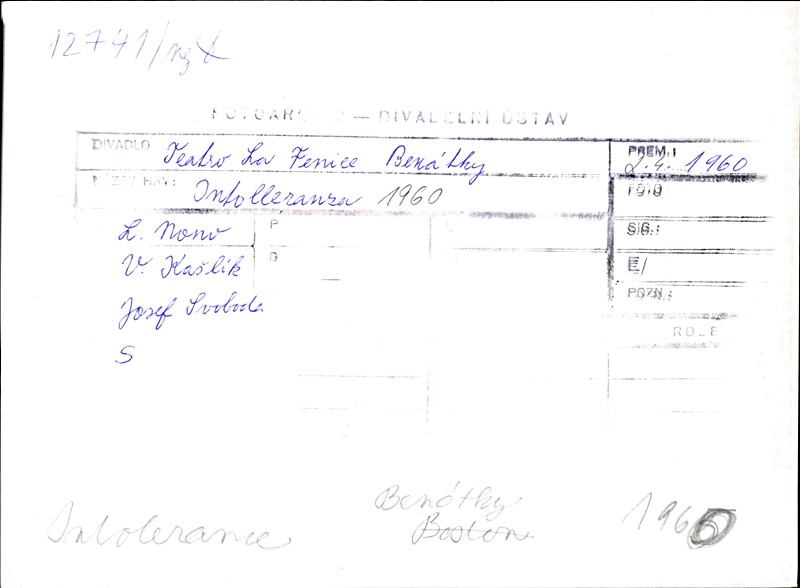 12741/
FOTOARCHIV — DIVADELNÍ ÚSTAV
DIVADLO Teatro La Fenice Benátky PREM.: 2.4. 1960
NÁZEV HRY: Intolleranza 1960 FOTO
L. Nono P SIG.:
V. Kašlík O E/
Josef Svoboda POZN.:
S ROLE
Benátky
Intolerance Boston 1960